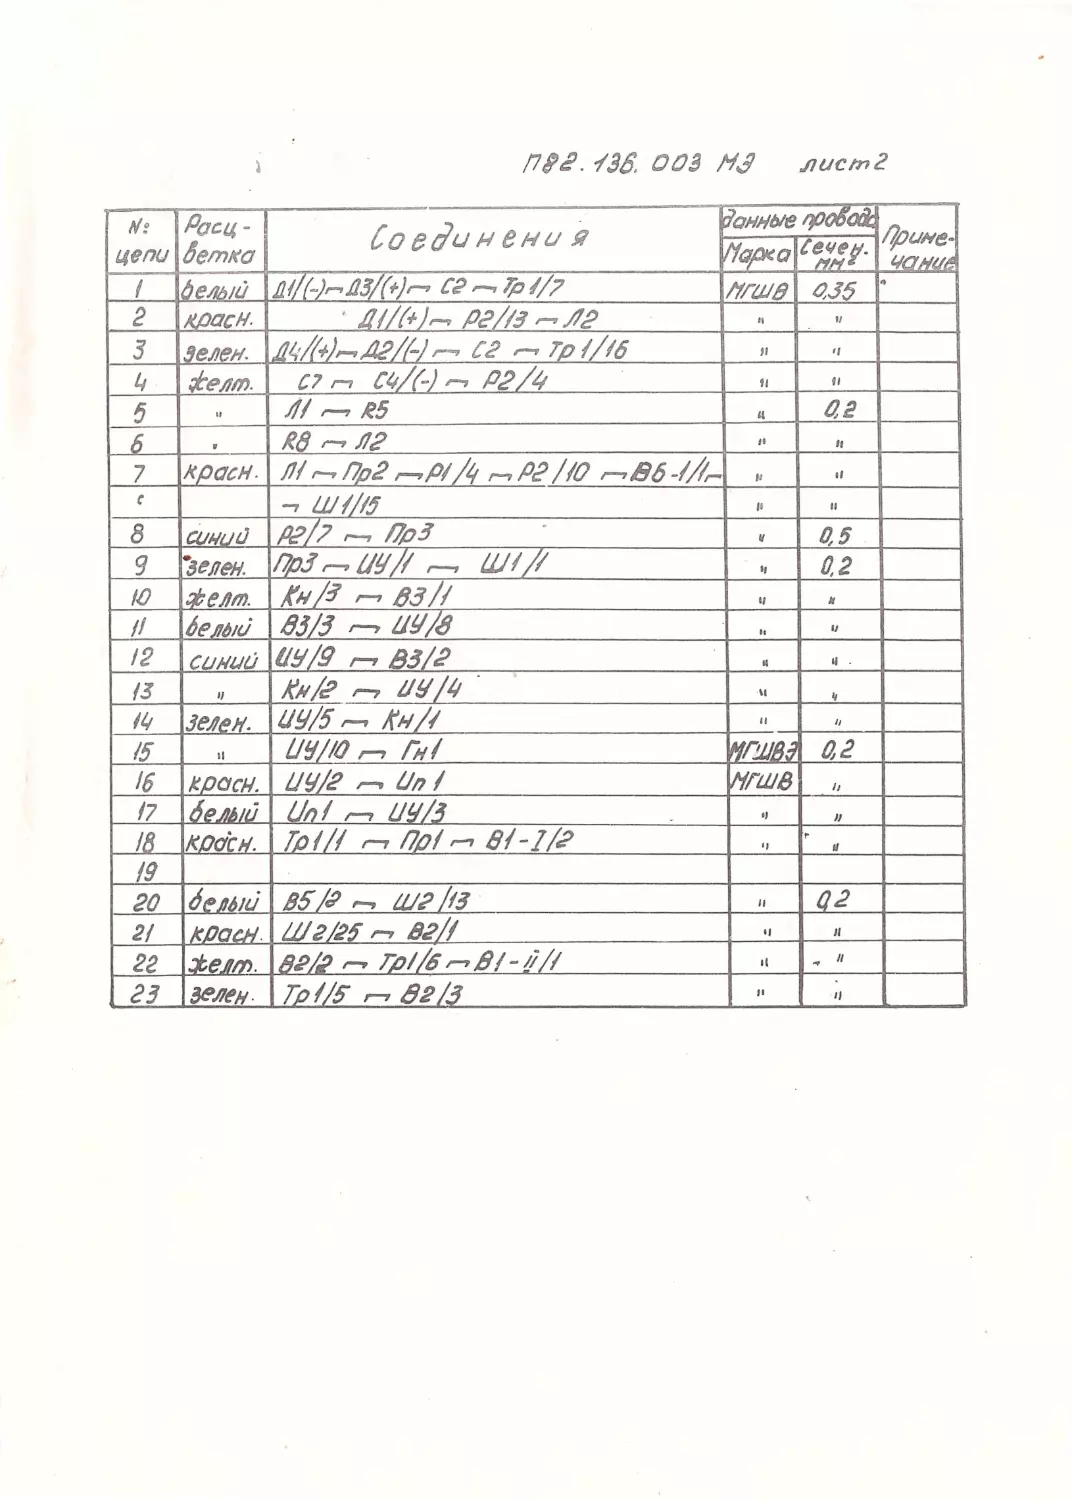 ПВ2.136.003 МЭ лист 2
№ цепи Расцветка Соединения Данные провода Примечание
Марка Сечен. мм²
1 белый Д1/(-)⌐¬Д3/(+)⌐¬ С2 ⌐¬ Тр1/7 МГШВ 0,35
2 красн. Д1/(+)⌐¬ Р2/13 ⌐¬ Л2 " "
3 зелен. Д4/(+)⌐¬Д2/(-) ⌐¬ С2 ⌐¬ Тр1/16 " "
4 желт. С7 ⌐¬ С4/(-) ⌐¬ Р2/4 " "
5 " Л1 ⌐¬ R5 " 0,2
6 " R8 ⌐¬ Л2 " "
7 красн. Л1 ⌐¬ Пр2 ⌐¬Р1/4 ⌐¬ Р2/10 ⌐¬В6-1/1⌐
¬ Ш1/15 " "
8 синий Р2/7 ⌐¬ Пр3 " 0,5
9 зелен. Пр3 ⌐¬ ИУ/1 ⌐¬ Ш1/1 " 0,2
10 желт. Кн/3 ⌐¬ В3/1 " "
11 белый В3/3 ⌐¬ ИУ/8 " "
12 синий ИУ/9 ⌐¬ В3/2 " "
13 " Кн/2 ⌐¬ ИУ/4 " "
14 зелен. ИУ/5 ⌐¬ Кн/1 " "
15 " ИУ/10 ⌐¬ Гн1 МГШВЭ 0,2
16 красн. ИУ/2 ⌐¬ Ип1 МГШВ "
17 белый Ип1 ⌐¬ ИУ/3 " "
18 красн. Тр1/1 ⌐¬ Пр1 ⌐¬ В1-I/2 " "
19
20 белый В5/2 ⌐¬ Ш2/13 " 0,2
21 красн. Ш2/25 ⌐¬ В2/1 " "
22 желт. В2/2 ⌐¬ Тр1/6 ⌐¬ В1-II/1 " "
23 зелен. Тр1/5 ⌐¬ В2/3 " "